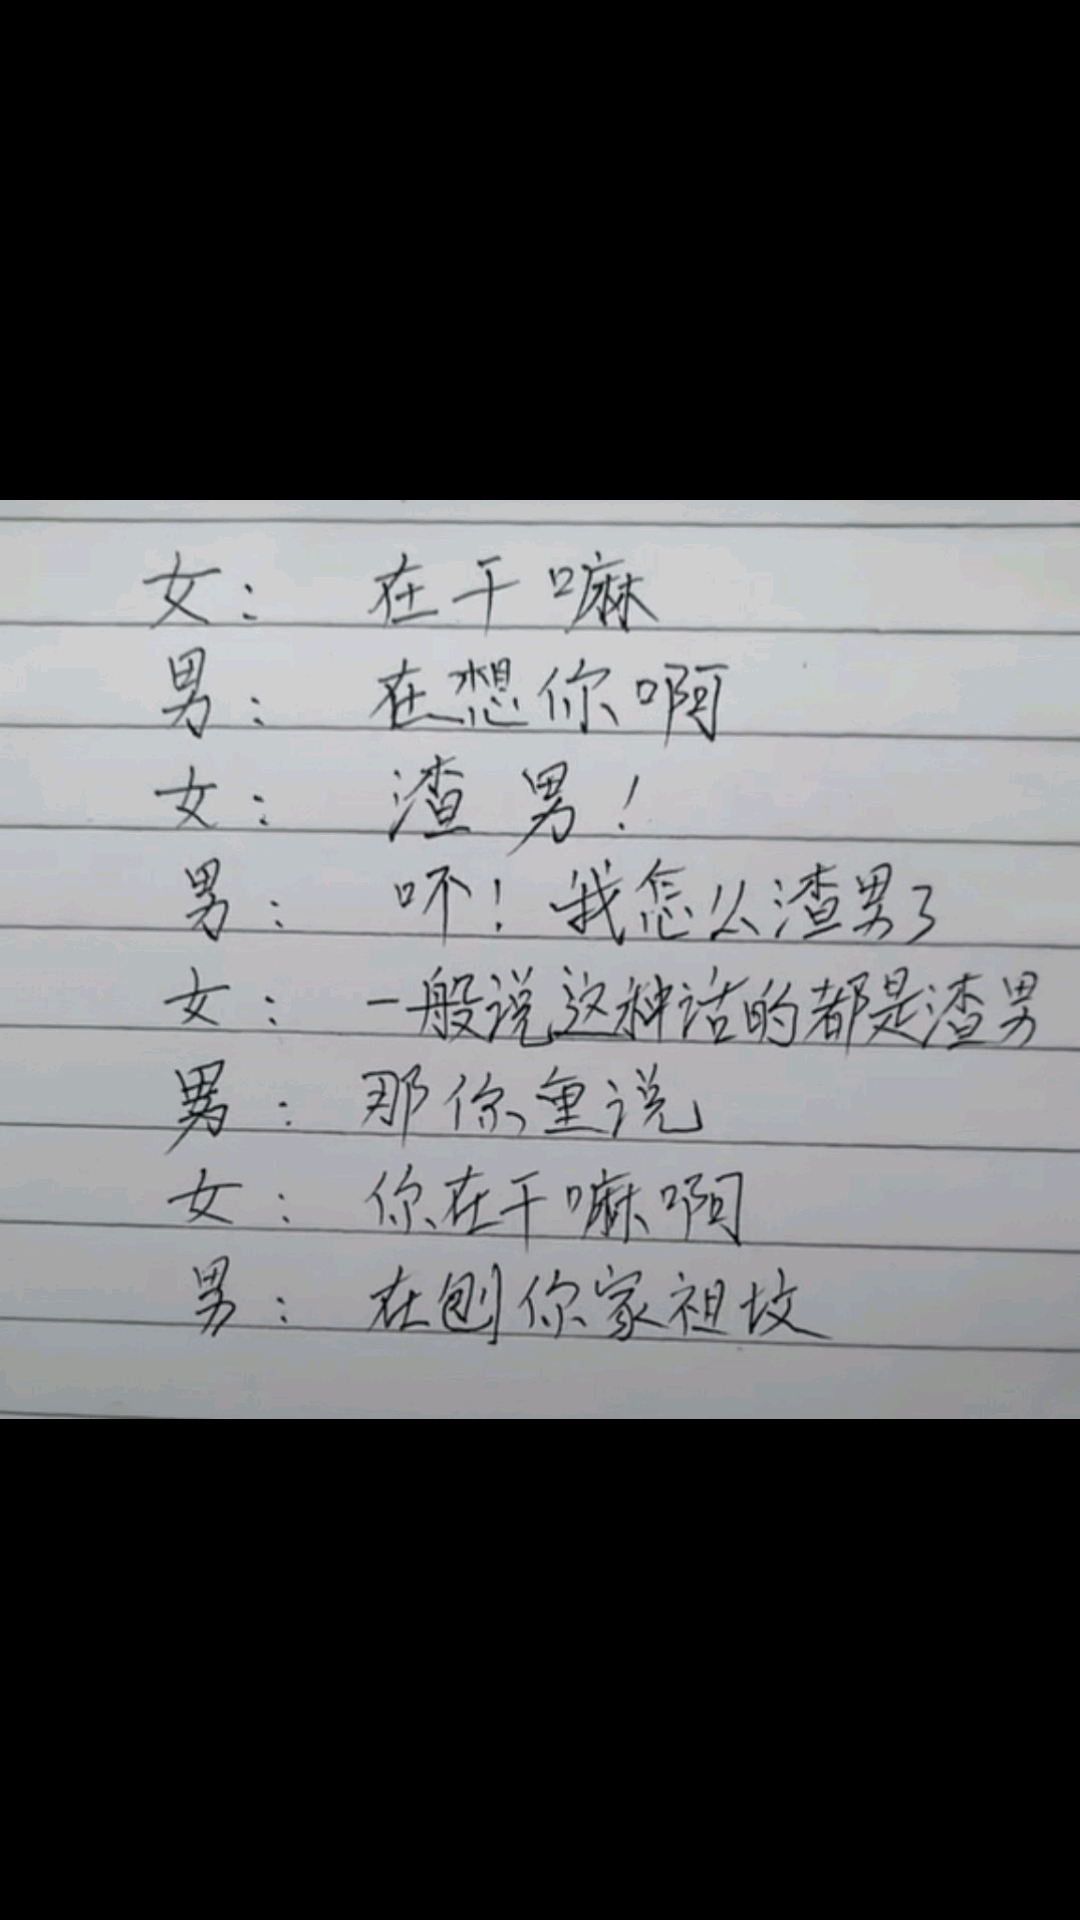 女： 在干嘛
男： 在想你啊
女： 渣男！
男： 吥！我怎么渣男了
女： 一般说这种话的都是渣男
男： 那你重说
女： 你在干嘛啊
男： 在刨你家祖坟